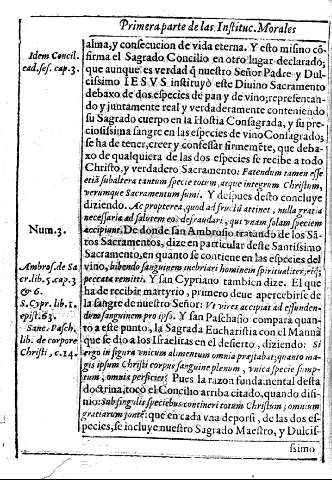 Primera parte de las Instituc. Morales
alma, y consecucion de vida eterna. Y esto mismo cõ-
Idem Concil.
ead. ses. cap. 3.
firma el Sagrado Concilio en otro lugar declarado;
que aunque es verdad q̃ nuestro Señor Padre y Dul-
cissimo IESVS instituyò este Diuino Sacramento
debaxo de dos especies de pan y de vino; representan-
do y juntamente real y verdaderamente conteniendo
su Sagrado cuerpo en la Hostia Consagrada, y su pre-
ciosissima sangre en las especies de vino Consagrado;
se ha de tener, creer y confessar firmemẽte, que deba-
xo de qualquiera de las dos especies se recibe a todo
Christo, y verdadero Sacramento: Fatendum tamen esse
etiã subaltera tantum specie totum, atque integrum Christum,
verumque Sacramentum sumi. Y despues desto concluye
diziendo. Ac propterea, quod ad fructũ attinet, nulla gratia
necessaria ad salutem eos defraudari, qui vnam solam speciem
Num. 3.
accipiunt. De donde san Ambrosio tratando de los Sã-
tos Sacramentos, dize en particular deste Santissimo
Sacramento, en quanto se contiene en las especies del
Ambros. de Sa
cr. lib. 5. cap. 3
& 6.
vino, bibendo sanguinem inebriari hominem spiritualiter, eiq;
peccata remitti. Y san Cypriano tambien dize. El que
ha de recibir martyrio, primero deue apercebirse de
S. Cypr. lib. 1.
epist. 63.
la sangre de nuestro Señor: Vt vires accipiat ad effunden-
dum sanguinem pro ipso. Y san Paschasio compara quan-
to a este punto, la Sagrada Eucharistia con el Mannà
Sanc. Pasch.
lib. de corpore
Christi, c. 14.
que se dio a los Israelitas en el desierto, diziendo: Si
ergo in figura vnicum alimentum omnia præstabat; quanto ma-
gis ipsum Christi corpus sanguine plenum, vnica specie sump-
tum, omnia perficiet? Pues la razon fundamental desta
doctrina, tocò el Concilio arriba citado, quando di-
xo: sub singulis speciebus contineri totum Christum; omnium
gratiarum fontẽ: que en cada vna de por si, de las dos es-
pecies, se incluye nuestro Sagrado Maestro, y Dulcis-
ssimo